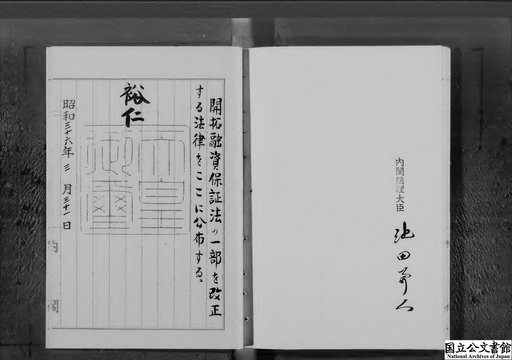 開拓融資保証法の一部を改正
する法律をここに公布する。
裕仁
天皇
御璽
昭和三十六年三月三十一日
内閣
内閣総理大臣
池田勇人
国立公文書館
National Archives of Japan